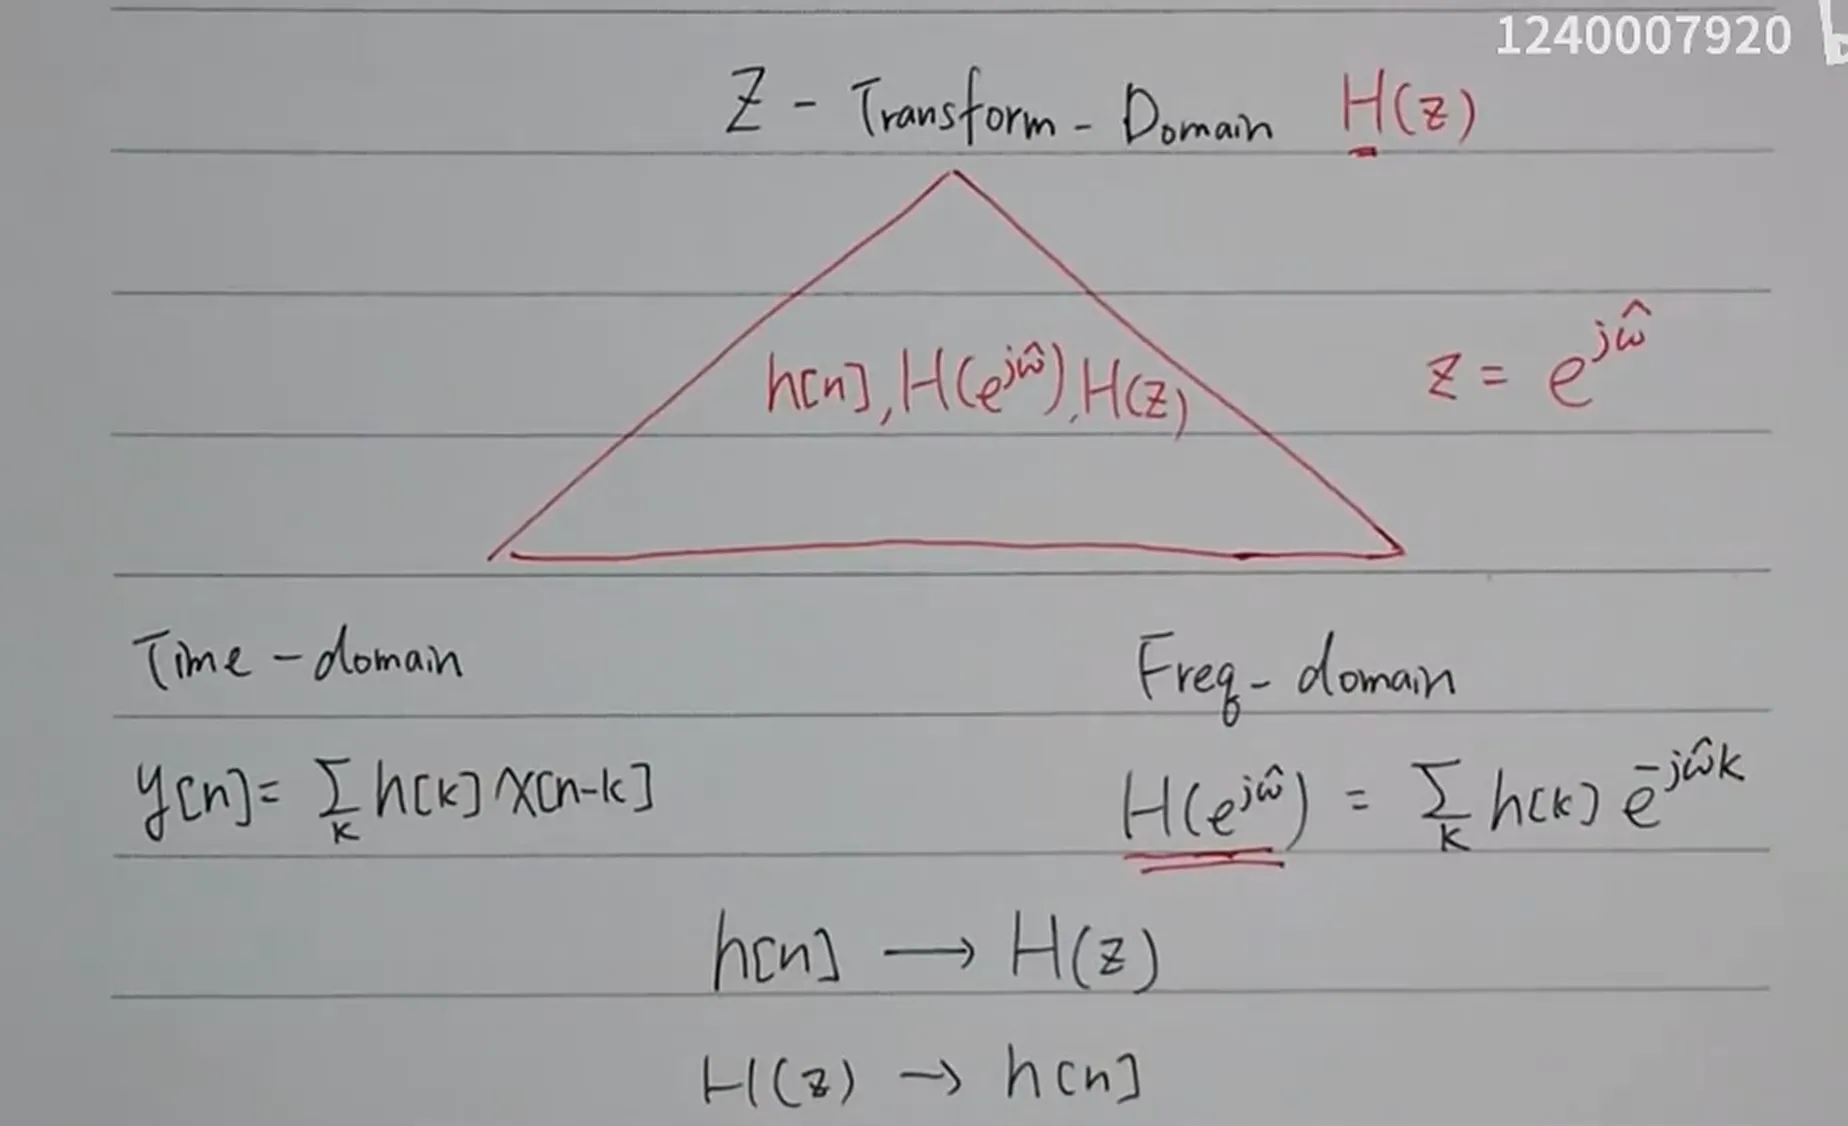 1240007920
Z - Transform - Domain H(z)
h[n], H(e^{jω̂}), H(z)
z = e^{jω̂}
Time - domain
Freq - domain
y[n] = ∑_k h[k] x[n-k]
H(e^{jω̂}) = ∑_k h[k] e^{-jω̂k}
h[n] → H(z)
H(z) → h[n]